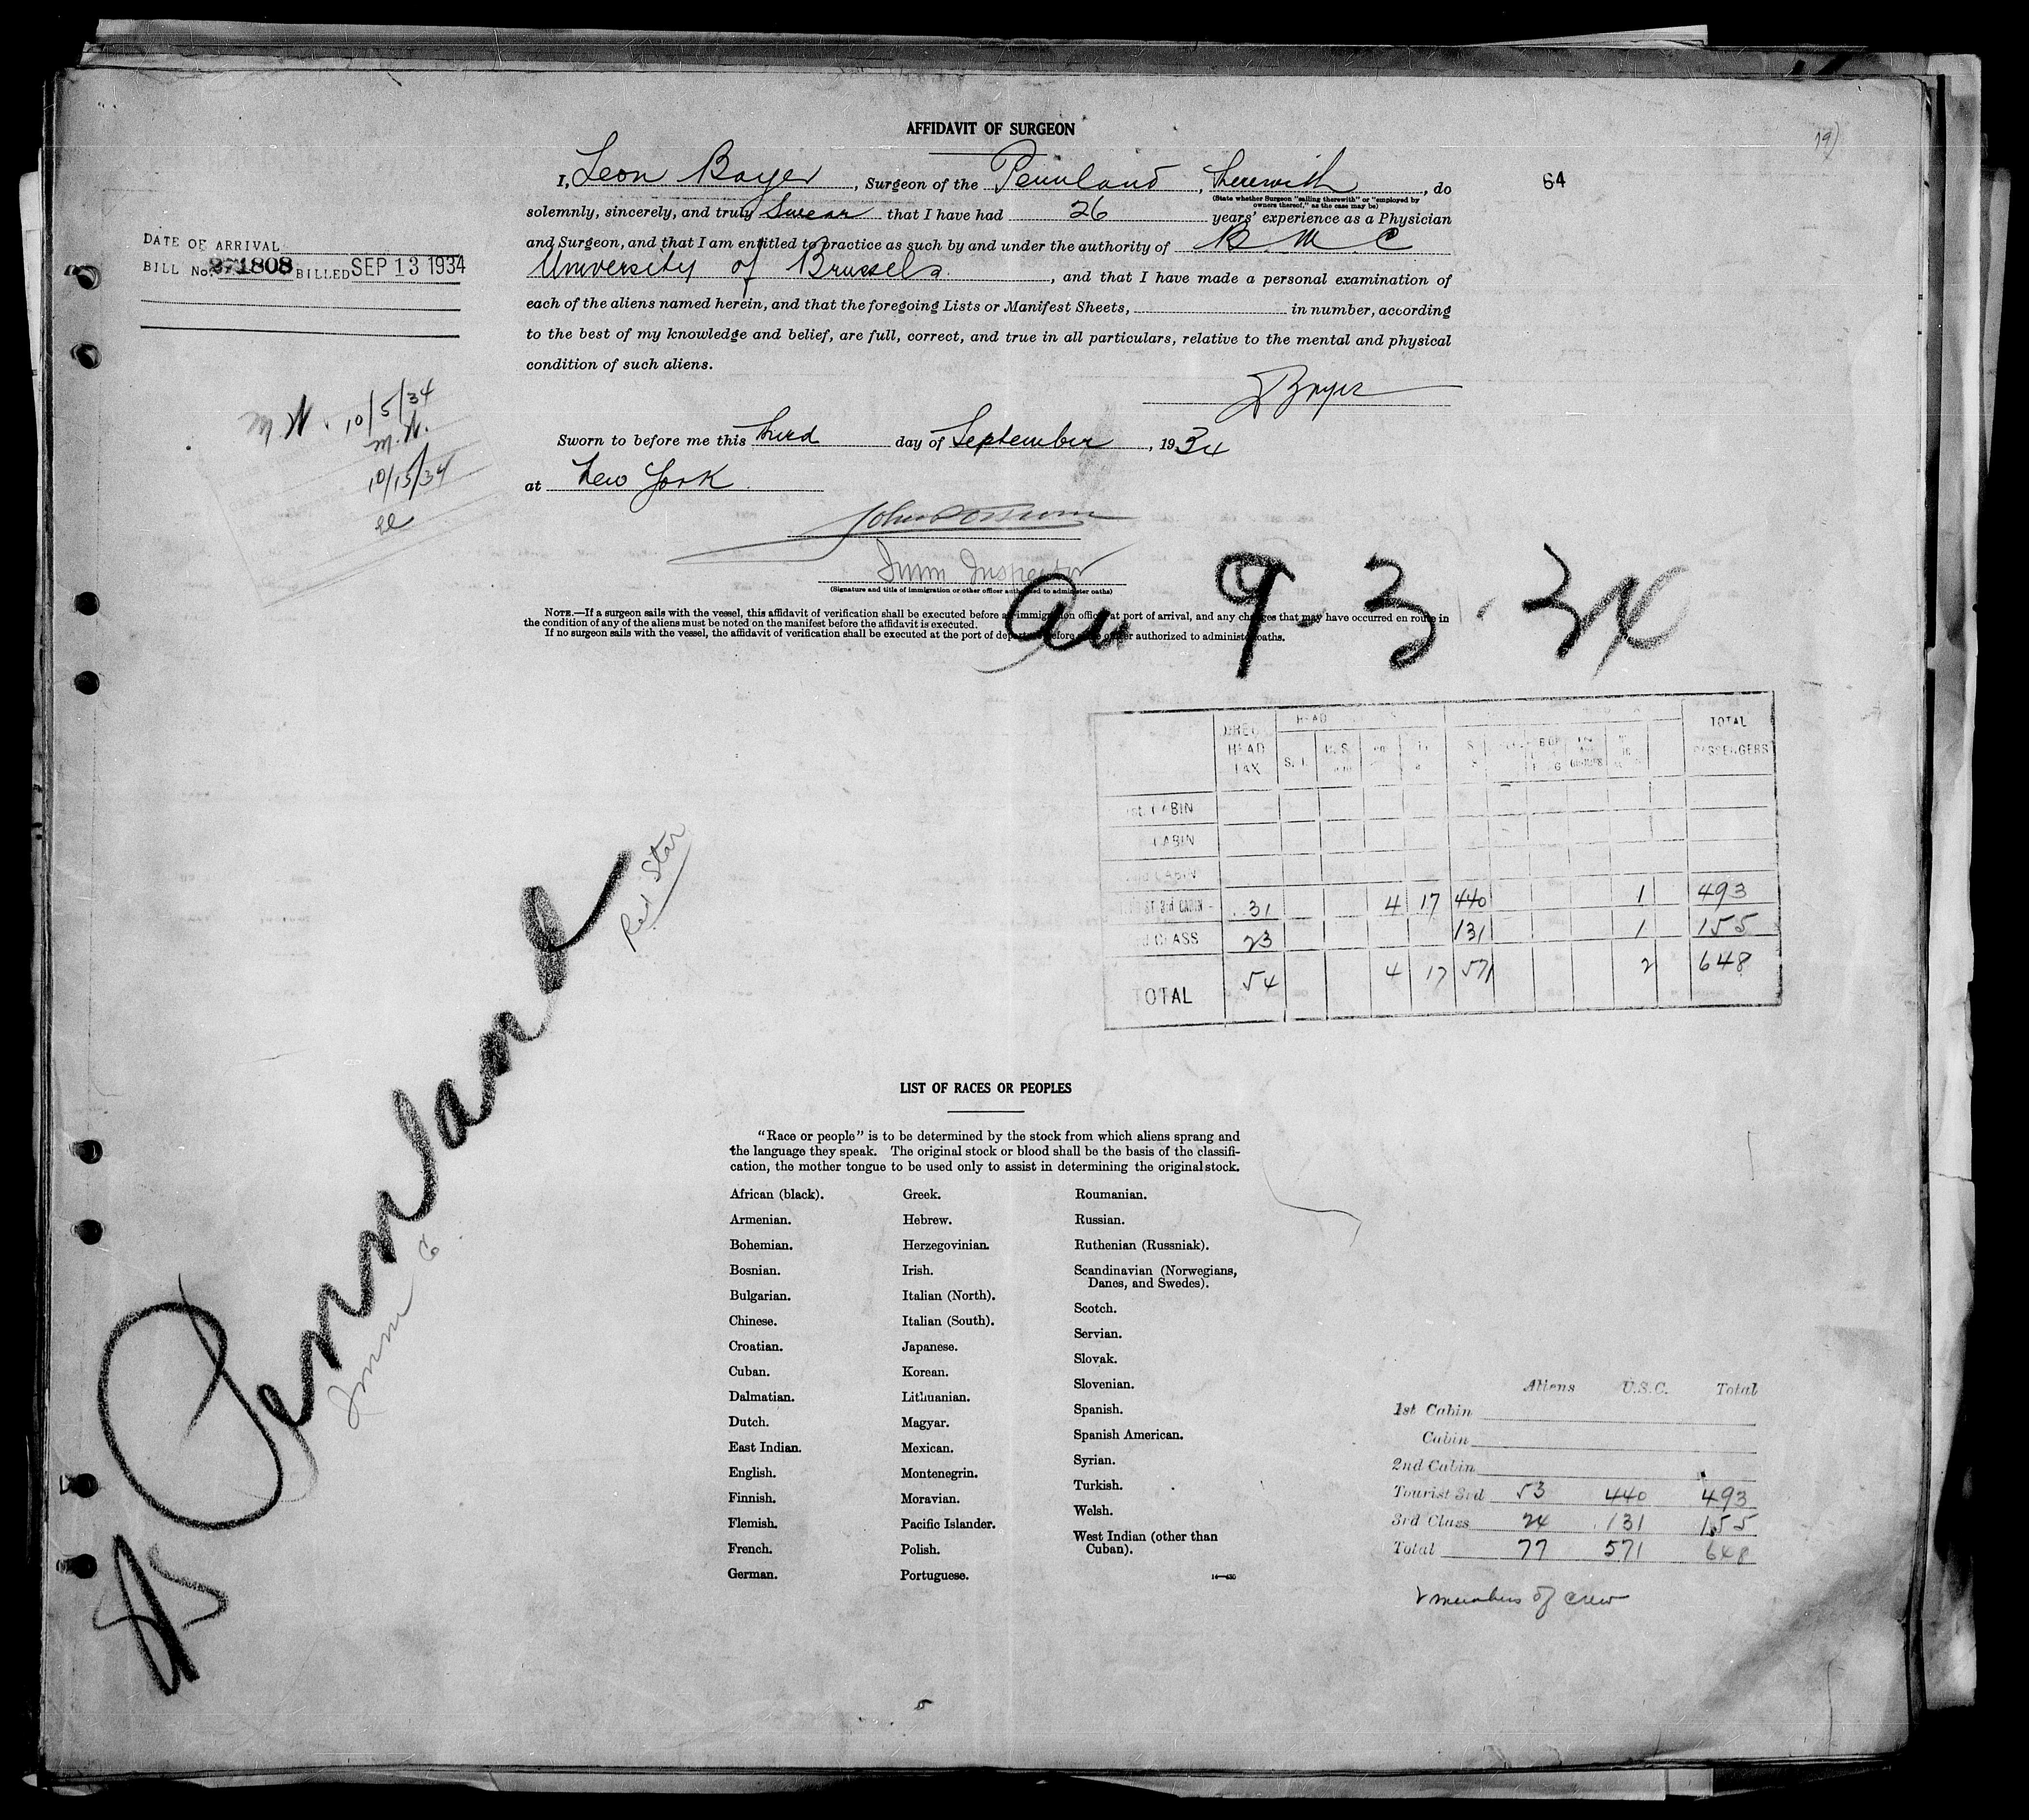 AFFIDAVIT OF SURGEON
19)
64
I, Leon Boyer, Surgeon of the Pennland, therewith, do
(State whether Surgeon "sailing therewith" or "employed by
owners thereof," as the case may be)
solemnly, sincerely, and truly Swear that I have had 26 years' experience as a Physician
and Surgeon, and that I am entitled to practice as such by and under the authority of B M C
University of Brussels, and that I have made a personal examination of
each of the aliens named herein, and that the foregoing Lists or Manifest Sheets, in number, according
to the best of my knowledge and belief, are full, correct, and true in all particulars, relative to the mental and physical
condition of such aliens.
L Boyer
DATE OF ARRIVAL
BILL No. 271808 BILLED SEP 13 1934
M.W. 10/5/34
M.W.
10/15/34
Sworn to before me this third day of September, 1934
at New York
Imm Inspector
(Signature and title of immigration or other officer authorized to administer oaths)
NOTE.—If a surgeon sails with the vessel, this affidavit of verification shall be executed before an immigration officer at port of arrival, and any changes that may have occurred en route in
the condition of any of the aliens must be noted on the manifest before the affidavit is executed.
If no surgeon sails with the vessel, the affidavit of verification shall be executed at the port of departure before some officer authorized to administer oaths.
9-3-34
HEAD TAX TOTAL PASSENGERS
S.I. U.S.
1st CABIN
CABIN
2nd CABIN
TOURIST 3rd CABIN 31 4 17 440 1 493
3rd CLASS 23 131 1 155
TOTAL 54 4 17 571 2 648
Pennland
Red Star
LIST OF RACES OR PEOPLES
"Race or people" is to be determined by the stock from which aliens sprang and
the language they speak. The original stock or blood shall be the basis of the classifi-
cation, the mother tongue to be used only to assist in determining the original stock.
African (black).
Armenian.
Bohemian.
Bosnian.
Bulgarian.
Chinese.
Croatian.
Cuban.
Dalmatian.
Dutch.
East Indian.
English.
Finnish.
Flemish.
French.
German.
Greek.
Hebrew.
Herzegovinian.
Irish.
Italian (North).
Italian (South).
Japanese.
Korean.
Lithuanian.
Magyar.
Mexican.
Montenegrin.
Moravian.
Pacific Islander.
Polish.
Portuguese.
Roumanian.
Russian.
Ruthenian (Russniak).
Scandinavian (Norwegians,
Danes, and Swedes).
Scotch.
Servian.
Slovak.
Slovenian.
Spanish.
Spanish American.
Syrian.
Turkish.
Welsh.
West Indian (other than
Cuban).
Aliens U.S.C. Total
1st Cabin
Cabin
2nd Cabin
Tourist 3rd 53 440 493
3rd Class 24 131 155
Total 77 571 648
2 members of crew